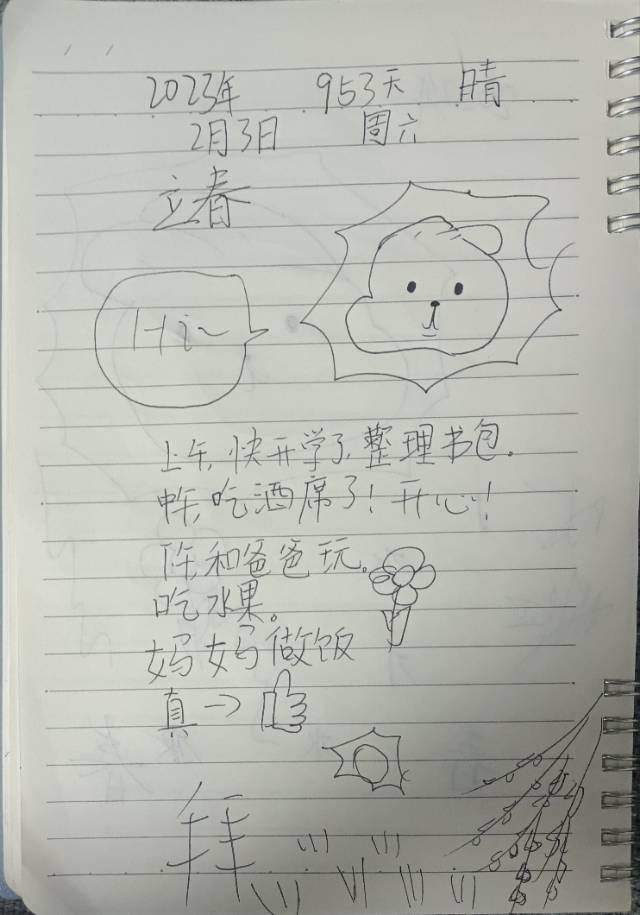 2023年 953天 晴
2月3日 周六
立春
Hi~
上午,快开学了,整理书包。
中午,吃酒席了!开心!
下午,和爸爸玩。
吃水果。
妈妈做饭
真→
拜